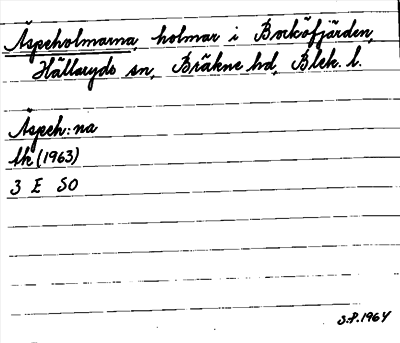 Äspeholmarna, holmar i Bocköfjärden,
Hällaryds sn, Bräkne hd, Blek. l.
Äspeh:na
Ek (1963)
3 E SO
3.8.1964